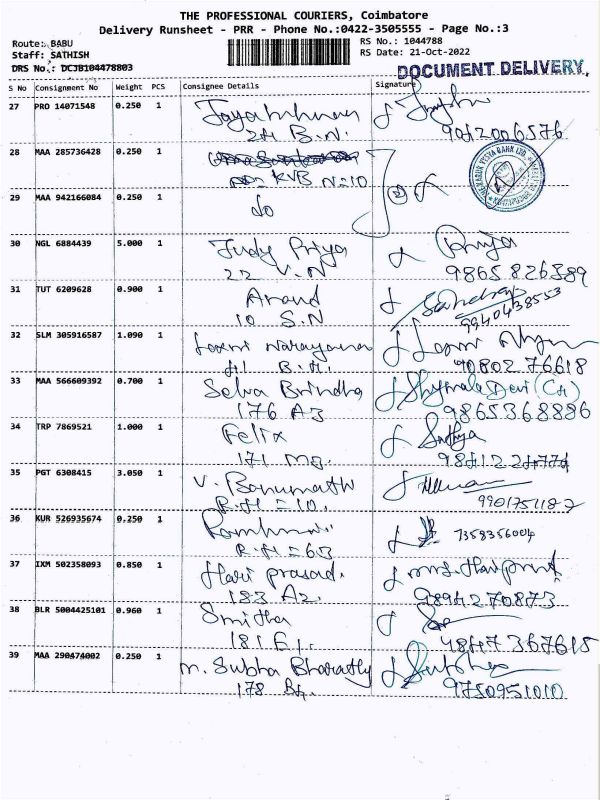 THE PROFESSIONAL COURIERS, Coimbatore
Delivery Runsheet - PRR - Phone No.:0422-3505555 - Page No.:3
Route: BABU
Staff: SATHISH
DRS No.: DCJB104478803
RS No.: 1044788
RS Date: 21-Oct-2022
DOCUMENT DELIVERY.
S No Consignment No Weight PCS Consignee Details Signature
27 PRO 14071548 0.250 1
24 B.N.
28 MAA 285736428 0.250 1
KVB N=10
29 MAA 942166084 0.250 1 do
30 NGL 6884439 5.000 1 Judy Priya Priya
22 V.N 9865826389
31 TUT 6209628 0.900 1 Anand
10 S.N 9940438553
32 SLM 305916587 1.090 1 Laxmi Narayanan
41 B.N. 9080276618
33 MAA 566609392 0.700 1 Selva Brindha Shyamala Devi
176 A3 9865368886
34 TRP 7869521 1.000 1 Felix Sathya
171
35 PGT 6308415 3.050 1 V. Banumathi
R.H=10.
36 KUR 526935674 0.250 1
R.H=63 7358356004
37 IXM 502358093 0.850 1 Hari prasad.
183 A2. 9894270873
38 BLR 5004425101 0.960 1 Smitha
181 E1. 9847367615
39 MAA 290474002 0.250 1 M. Subha Bharathy
178 9750951010